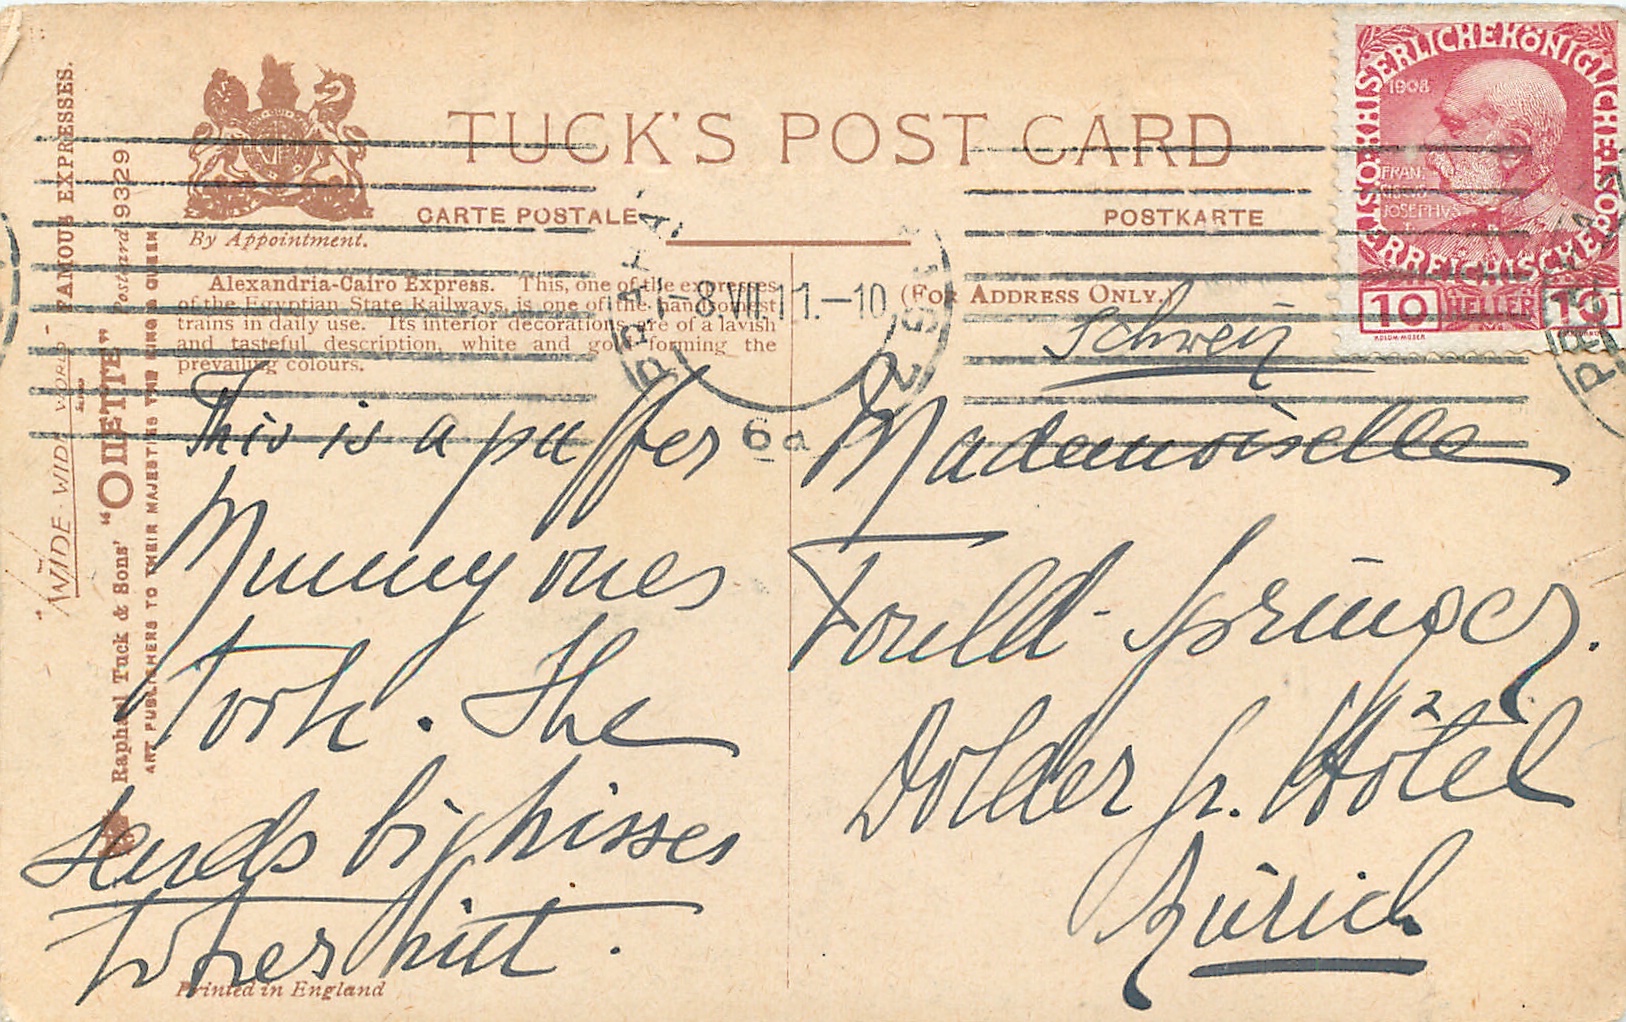 TUCK'S POST CARD
CARTE POSTALE
POSTKARTE
By Appointment.
(FOR ADDRESS ONLY.)
Alexandria-Cairo Express. This, one of the expresses
of the Egyptian State Railways, is one of the handsomest
trains in daily use. Its interior decorations are of a lavish
and tasteful description, white and gold forming the
prevailing colours.
"WIDE-WIDE-WORLD - FAMOUS EXPRESSES.
SERIES
Raphael Tuck & Sons' "OILETTE" Postcard 9329
ART PUBLISHERS TO THEIR MAJESTIES THE KING & QUEEN
KAISERLICHEKÖNIGLICHE
ÖSTERREICHISCHEPOST
1908
FRAN
CISCVS
JOSEPHVS
10 HELLER 10
KOLOM·MOSER
PRAHA
-8 VII 11.-10
PRAG
6a
This is a puffer
Mummy ones
Took. She
sends big kisses
to her
Schweiz
Mademoiselle
Fould-Springer.
Dolder Gr. Hôtel
Zürich
Printed in England